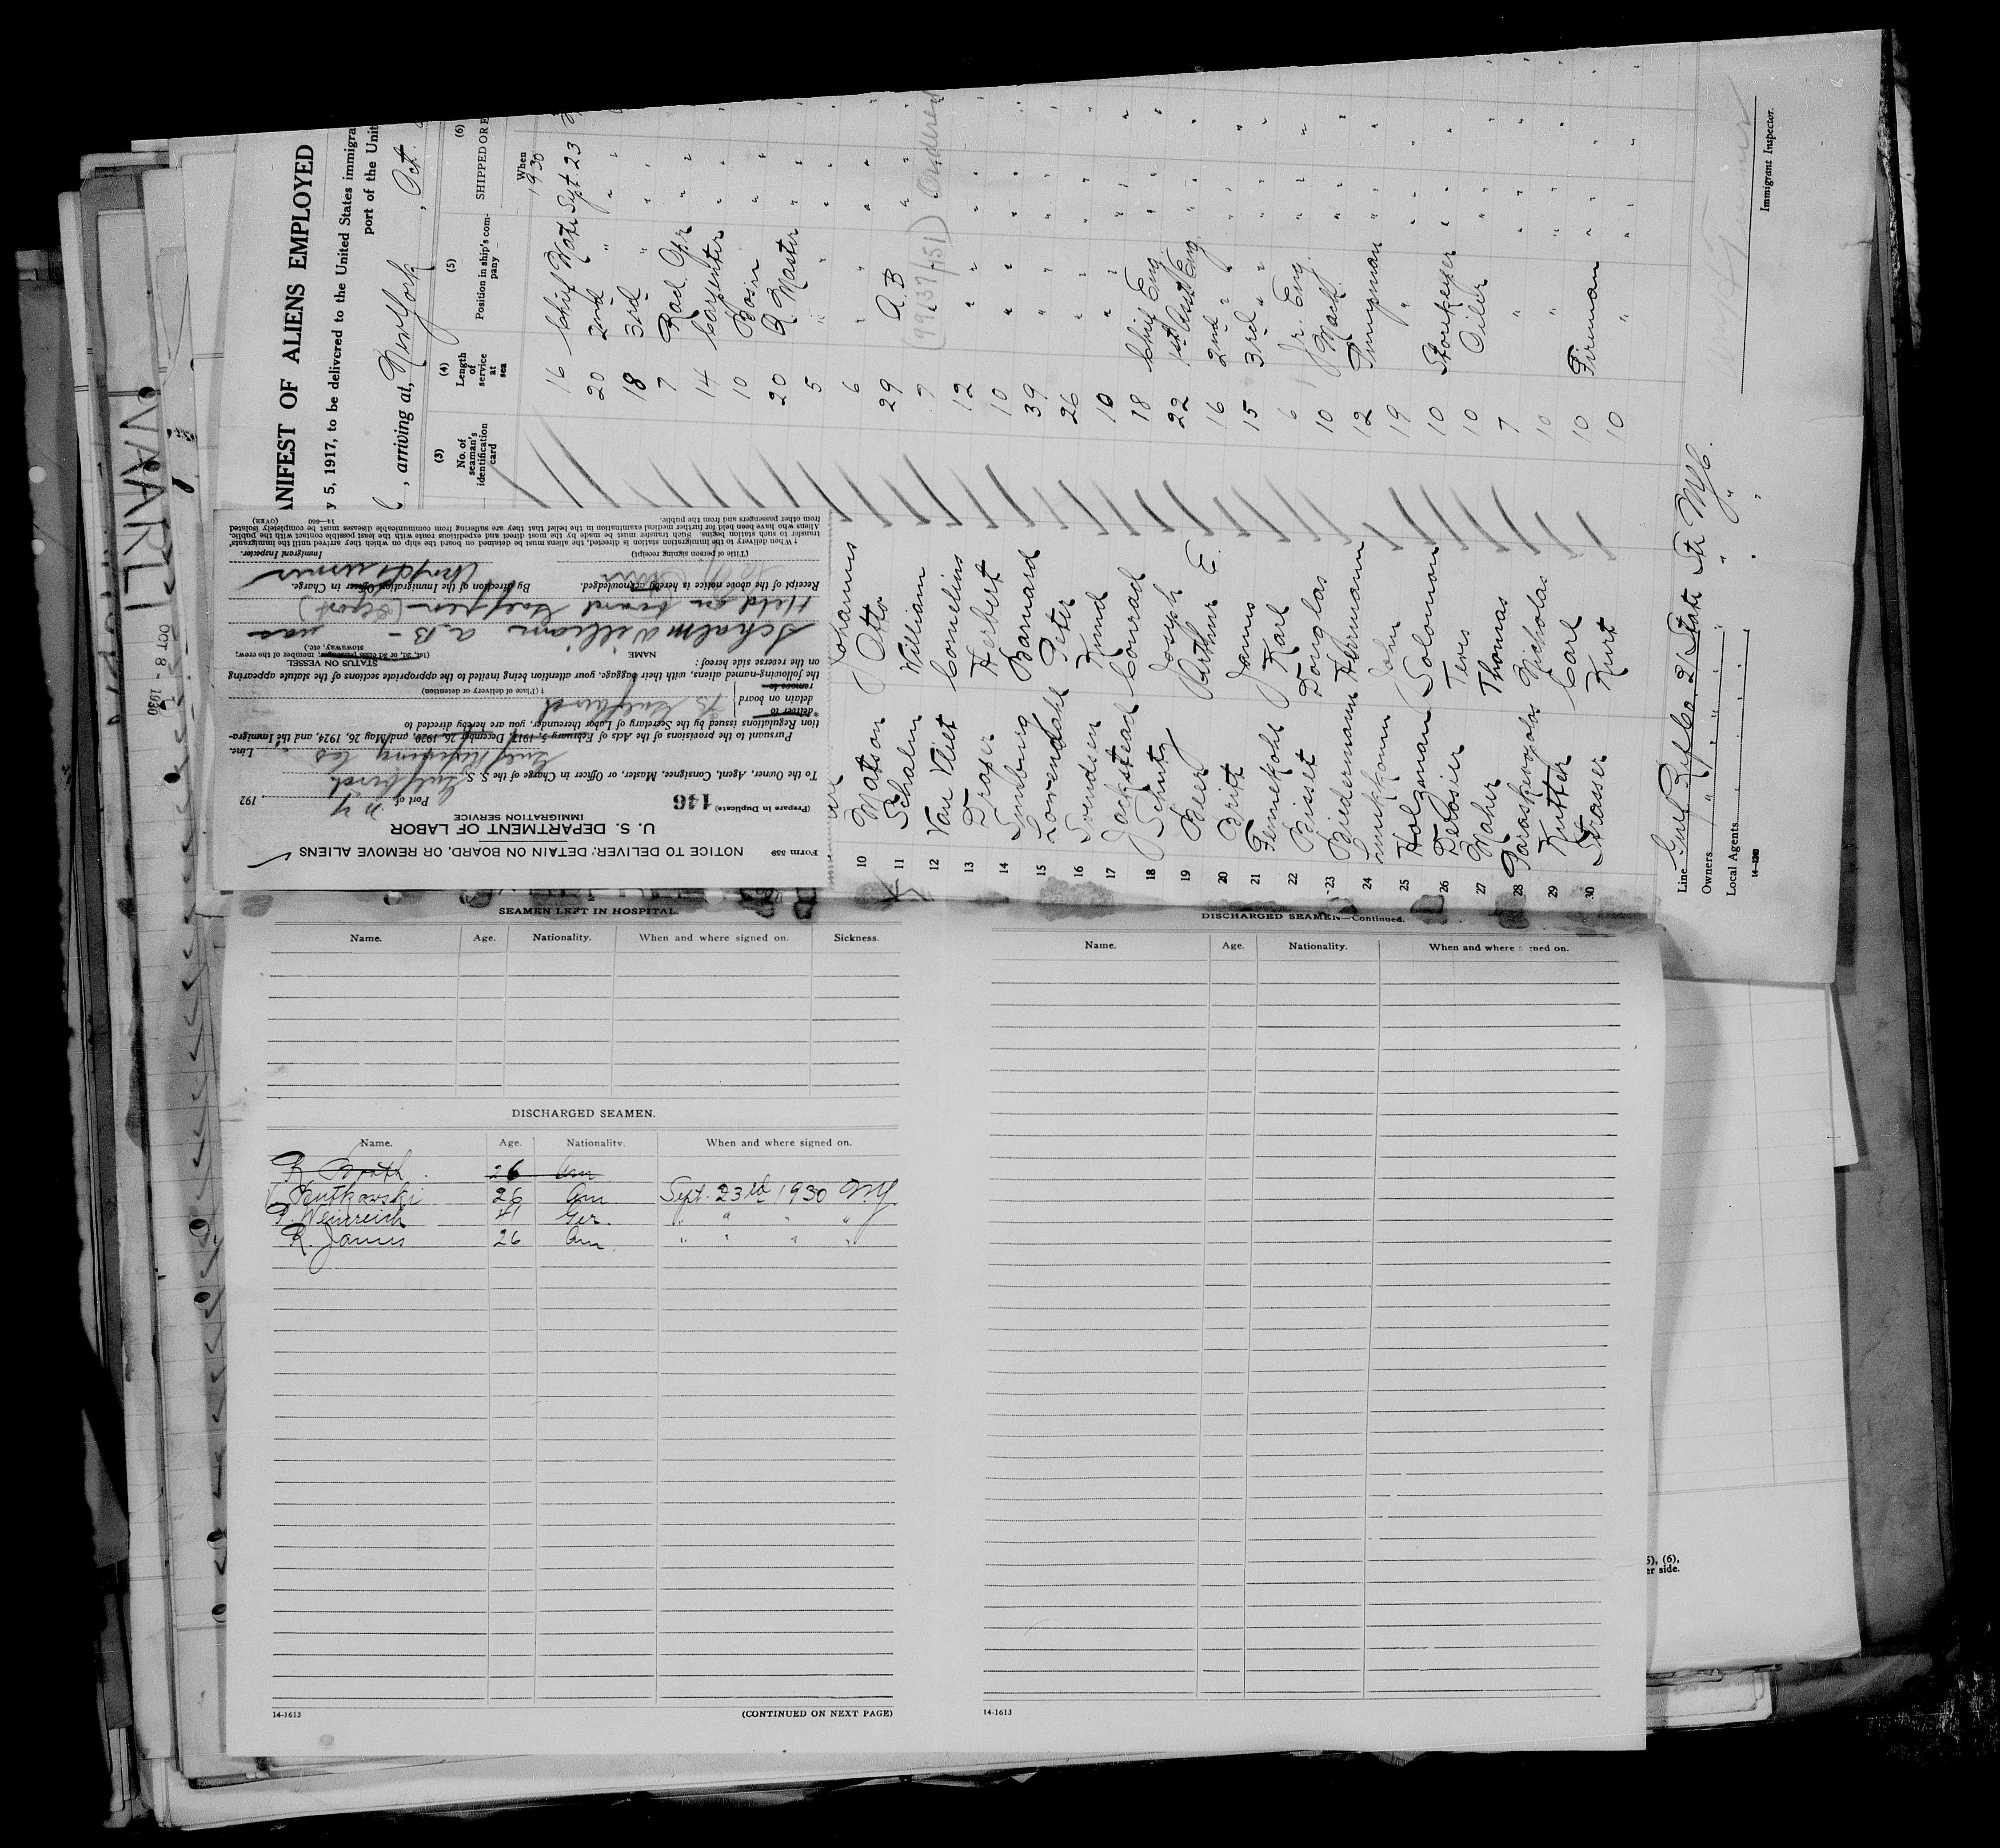 ANIFEST OF ALIENS EMPLOYED
y 5, 1917, to be delivered to the United States immigra
port of the Unit
, arriving at, New York, Oct.
(3) (4) (5) (6)
No. of seaman's identification card
Length of service at sea
Position in ship's company
SHIPPED OR E
When
1930
16 Chief Mate Sept 23
20 2nd " " "
18 3rd " " "
7 Rad. Opr " "
14 Carpenter " "
10 Bos'n " "
20 Q. Master " "
5 " " "
6 " " "
10 Matson Otto 29 A.B " "
11 Schalm William 7 (99637/751) Ordered
12 Van Vliet Cornelius 12 " " "
13 Draser Herbert 10 " " "
14 Barnard 39 " " "
15 Lowendahl Peter 26 " " "
16 Svendsen Knud 10 " " "
17 Jackstead Conrad 18 Chief Eng " "
18 Schutz Joseph 22 1st Asst Eng " "
19 Beer Arthur E. 16 2nd " " "
20 Britt James 15 3rd " " "
21 Fennekohl Karl 6 Jr. Eng. " "
22 Bisset Douglas 10 Mach. " "
23 Biedermann Hermann 12 Pumpman " "
24 John 19 " " "
25 Holzeman Solomon 10 Storekeeper " "
26 10 Oiler " "
27 Maher Thomas 7 " " "
28 Paraskevopolos Nicholas 10 " " "
29 Kutter Carl 10 Fireman " "
30 Strasser Kurt 10 " " "
Line Gulf Ref Co 21 State St NYC.
Owners " " " " "
Local Agents
14-1240
Immigrant Inspector.
Form 559
NOTICE TO DELIVER, DETAIN ON BOARD, OR REMOVE ALIENS
U. S. DEPARTMENT OF LABOR
IMMIGRATION SERVICE
(Prepare in Duplicate) 146
Port of N.Y. 192
To the Owner, Agent, Consignee, Master, or Officer in Charge of the S. S. Gulfbird
Gulf Refining Co Line.
Pursuant to the provisions of the Acts of February 5, 1917, December 26, 1920, and May 26, 1924, and the Immigra-
tion Regulations issued by the Secretary of Labor thereunder, you are hereby directed to
*deliver to
detain on board
remove to
† (Place of delivery or detention)
the following-named aliens, with their baggage, your attention being invited to the appropriate sections of the statute appearing
on the reverse side hereof:
NAME
STATUS ON VESSEL
(1st, 2d, or 3d class passenger, member of the crew, stowaway, etc.)
Schalm William A.B. - was
Held on board
Receipt of the above notice is hereby acknowledged.
By direction of the Immigration Officer in Charge.
(Title of person signing receipt)
Immigrant Inspector.
† When delivery to the immigration station is directed, the aliens must be detained on board the ship on which they arrived until the immigrants'
transfer to such station begins. Such transfer must be made by the most direct and expeditious route with the least possible contact with the public.
Aliens who have been held for further medical examination in the belief that they are suffering from communicable diseases must be completely isolated
from other passengers and from the public.
14—660 (OVER)
OCT 8 - 1930
SEAMEN LEFT IN HOSPITAL.
Name. Age. Nationality. When and where signed on. Sickness.
DISCHARGED SEAMEN.
Name. Age. Nationality. When and where signed on.
26 Am
Rutkowski 26 Am Sept. 23rd 1930 N.Y.
P. Weinreich 41 Ger. " " " "
R. James 26 Am. " " " "
14-1613
(CONTINUED ON NEXT PAGE)
DISCHARGED SEAMEN—Continued.
Name. Age. Nationality. When and where signed on.
14-1613
5), (6),
er side.